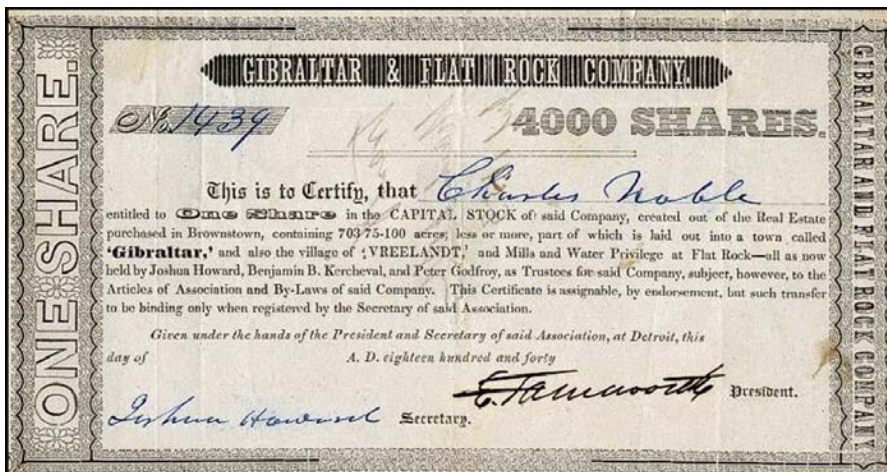 GIBRALTAR & FLAT ROCK COMPANY.
No. 1439 4000 SHARES.
This is to Certify, that Charles Noble
entitled to One Share in the CAPITAL STOCK of said Company, created out of the Real Estate
purchased in Brownstown, containing 703 75-100 acres, less or more, part of which is laid out into a town called
'Gibraltar,' and also the village of 'VREELANDT,' and Mills and Water Privilege at Flat Rock—all as now
held by Joshua Howard, Benjamin B. Kercheval, and Peter Godfroy, as Trustees for said Company, subject, however, to the
Articles of Association and By-Laws of said Company. This Certificate is assignable, by endorsement, but such transfer
to be binding only when registered by the Secretary of said Association.
Given under the hands of the President and Secretary of said Association, at Detroit, this
day of A. D. eighteen hundred and forty
President.
Joshua Howard Secretary.
ONE SHARE.
GIBRALTAR AND FLAT ROCK COMPANY.